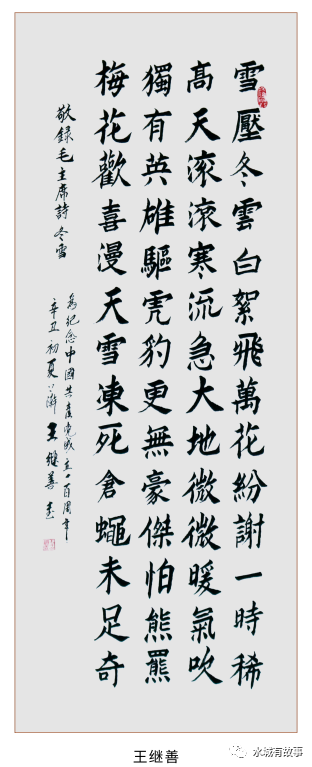 雪壓冬雲白絮飛萬花紛謝一時稀
髙天滚滚寒流急大地微微暖氣吹
獨有英雄驅虎豹更無豪傑怕熊羆
梅花歡喜漫天雪凍死倉蠅未足奇
敬錄毛主席詩冬雪
為紀念中國共產党成立一百周年
辛丑初夏 王继善書
王继善
水城有故事